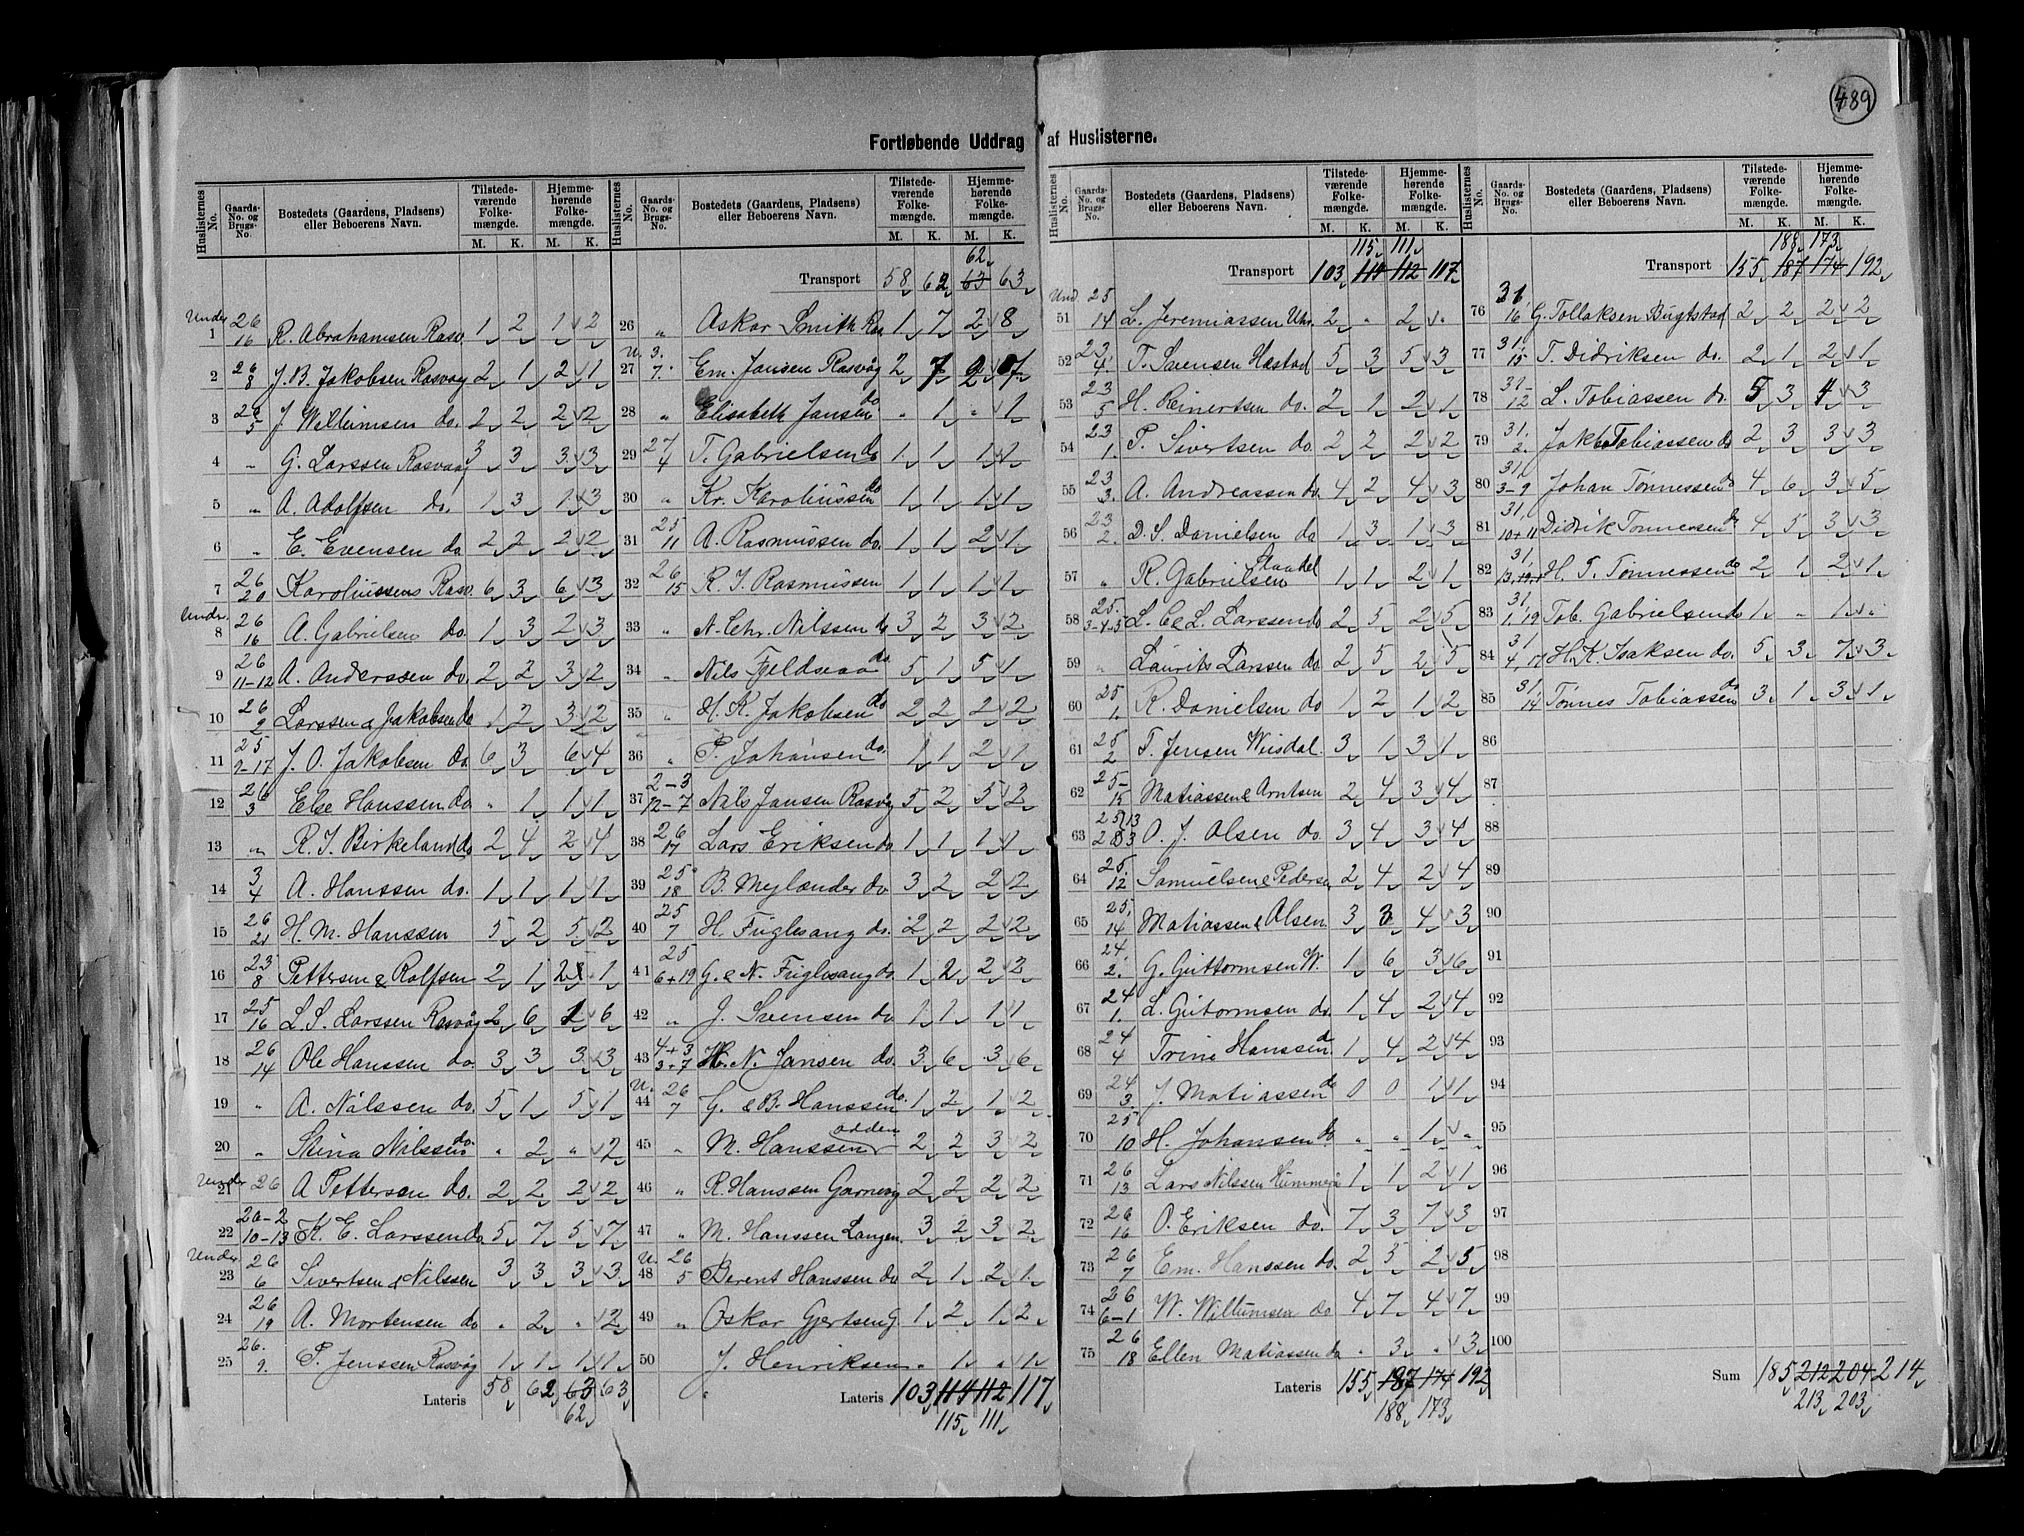 489
Fortløbende Uddrag af Huslisterne.
Huslisternes No. Gaards-No. og Brugs-No. Bostedets (Gaardens, Pladsens) eller Beboerens Navn. Tilstedeværende Folkemængde. M. K. Hjemmehørende Folkemængde. M. K.
Under 1 26/16 R. Abrahamsen Rasv. 1 2 1 2
2 26/8 J. B. Jakobsen Rasvaag 2 1 2 1
3 26/5 J. Willumsen do. 2 2 2 2
4 " G. Larssen Rasvaag 3 3 3 3
5 " A. Adolfsen do. 1 3 1 3
6 " E. Evensen do 2 2 2 2
7 26/20 Karoliussens Rasv. 6 3 6 3
Under 8 26/16 A. Gabrielsen do. 1 3 2 3
9 26/11-12 A. Anderssen do. 2 2 3 2
10 26/2 Larssen & Jakobsen do 1 2 3 2
11 25/9-17 J. O. Jakobsen do. 6 3 6 4
12 26/3 Else Hanssen do " 1 1 1
13 " R. J. Birkeland do 2 4 2 4
14 3/4 A. Hanssen do. 1 1 1 1
15 26/21 H. M. Hanssen 5 2 5 2
16 23/8 Pettersen & Rolfsen 2 1 2 1
17 25/16 L. S. Larssen Rasvåg 2 6 1 6
18 26/14 Ole Hanssen do. 3 3 3 3
19 " A. Nilssen do. 5 1 5 1
20 " Stina Nilssen do. " 2 " 2
Under 21 26 A Pettersen do. 2 2 2 2
22 26-2/10-13 K. E. Larssen do. 5 7 5 7
Under 23 26/6 Sivertsen & Nilssen 3 3 3 3
24 26/19 A. Mortensen do " 2 " 2
25 26/9. P. Jenssen Rasvåg 1 1 1 1
Lateris 58 62 63 63
62
62
Transport 58 62 63 63
26 " Askar Smith Ras 1 7 2 8
U. 27 3./7. Em. Jansen Rasvåg 2 7 2 7
28 " Elisabeth Jansen do " 1 " 1
29 27/4 T. Gabrielsen do 1 1 1 1
30 " Kr. Karoliussen do 1 1 1 1
31 25/11 A. Rasmussen do. 1 1 2 1
32 26/15 R. J. Rasmussen 1 1 1 1
33 " N. Chr. Nilssen do 3 2 3 2
34 " Nils Fjeldsaa do. 5 1 5 1
35 " H. K. Jakobsen do 2 2 2 2
36 " P. Johansen do. 1 1 2 1
37 2-3/12-7 Nils Jansen Rasvåg 5 2 5 2
38 26/17 Lars Eriksen do 1 1 1 1
39 25/18 B. Mylænder do 3 2 2 2
40 25/7 H. Fuglesang do. 2 2 2 2
41 25/6+19 G. & N. Fuglesang do. 1 2 2 2
42 " J. Svensen do 1 1 1 1
43 4+3/3+7 H. N. Jansen do. 3 6 3 6
U. 44 26/7 G. & B. Hanssen do. 1 2 1 2
45 " M. Hanssen odden 2 2 3 2
46 " R. Hanssen Garnvig 2 2 2 2
47 " M. Hanssen Langen. 3 2 3 2
U. 48 26/5 Berent Hanssen do 2 1 2 1
49 " Oskar Gjertsen G. 1 2 1 2
50 " J. Henriksen " 1 " 1
Lateris 103 114 112 117
115 111
115 111
Transport 103 114 112 117
Und 51 25/14 L. Jeremiassen Uhr. 2 " 2 "
52 23/4. T. Svensen Hæstad 5 3 5 3
53 23/5 H. Reinertsen do. 2 1 2 1
54 23/1. P. Sivertsen do. 2 2 2 2
55 23/3. A. Andreassen do. 4 2 4 3
56 23/2. D. S. Danielsen do 1 3 1 3
57 " R. Gabrielsen Straadel 1 1 2 1
58 25./3-4-5 L. C & L. Larssen do 2 5 2 5
59 " Laurits Larssen do 2 5 2 5
60 25/1. R. Danielsen do 1 2 1 2
61 25/2 T. Jensen Weisdal. 3 1 3 1
62 25-/15 Matiassen & Arntsen 2 4 3 4
63 25/13 O. J. Olsen do. 3 4 3 4
64 25./12 Samuelsen & Pedersen 2 4 2 4
65 25,/14 Matiassen & Olsen 3 3 4 3
66 24/2. G. Guttormsen W. 1 6 3 6
67 24/1. L. Gutormsen do. 1 4 2 4
68 24/4 Trine Hanssen do 1 4 2 4
69 24/3. J. Matiassen do 0 0 1 1
70 25/10 H. Johansen do " " 1 "
71 26/13 Lars Nilssen Hummerø 1 1 2 1
72 26/16 O. Eriksen do. 7 3 7 3
73 26/7 Em. Hanssen do. 2 5 2 5
74 26/6-1 W. Willumsen do 4 7 4 7
75 26/18 Ellen Matiassen do " 3 " 3
Lateris 155 187 174 192
188 173
188 173
Transport 155 187 174 192
76 31/16 G. Tollaksen Bugtstad 2 2 2 2
77 31/15 T. Didriksen do. 2 1 2 1
78 31-/12 L. Tobiassen do. 5 3 4 3
79 31./2. Jakob Tobiassen do 2 3 3 3
80 31/3-9 Johan Tønnessen do 4 6 3 5
81 31/10+11 Didrik Tønnessen do 4 5 3 3
82 31/13, H. T. Tønnessen do 2 1 2 1
83 31/1,19 Tob. Gabrielsen do 1 " 1 "
84 31/4,17 H. K. Isaksen do. 5 3 7 3
85 31/14 Tønnes Tobiassen do 3 1 3 1
86
87
88
89
90
91
92
93
94
95
96
97
98
99
100
Sum 185 212 204 214
213 203